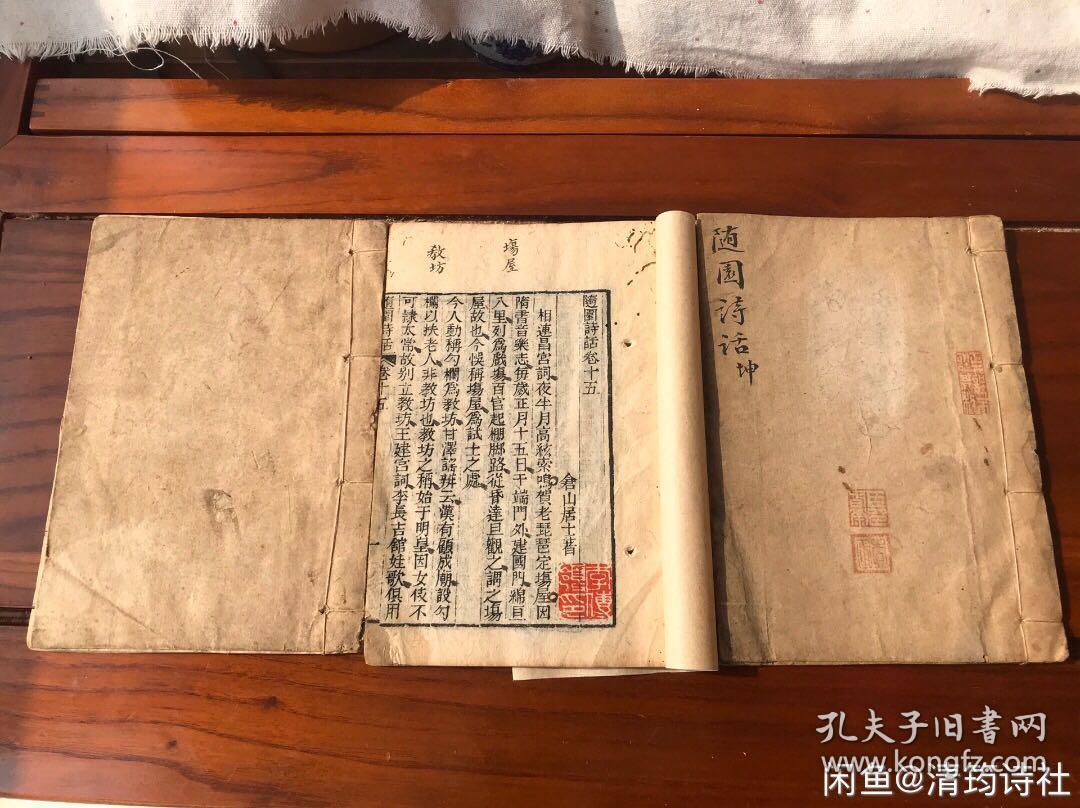 随園詩話坤
塲屋
教坊
隨園詩話卷十五
倉山居士著
相連昌宮詞夜半月高絃索鳴賀老琵琶定塲屋因
隋書音樂志每歲正月十五日于端門外建國門綿亘
八里列爲戲塲百官起棚脚路從昏達旦觀之謂之塲
屋故也今悞稱塲屋爲試士之處
今人動稱勾欄爲教坊甘澤謠辨云漢有顧成廟設勾
欄以扶老人非教坊也教坊之稱始于明皇因女伎不
可隷太常故别立教坊王建宮詞李長吉館娃歌俱用
隨園詩話 卷十五 一
孔夫子旧书网
www.kongfz.com
闲鱼@清筠诗社